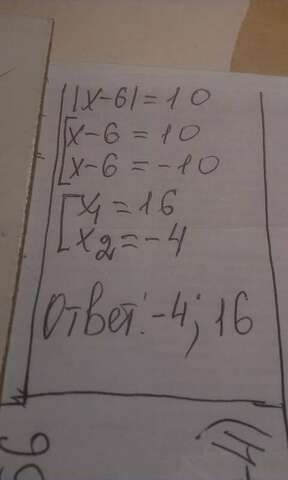 |x-6|=10
[x-6=10
[x-6=-10
[x₁=16
[x₂=-4
Ответ: -4; 16